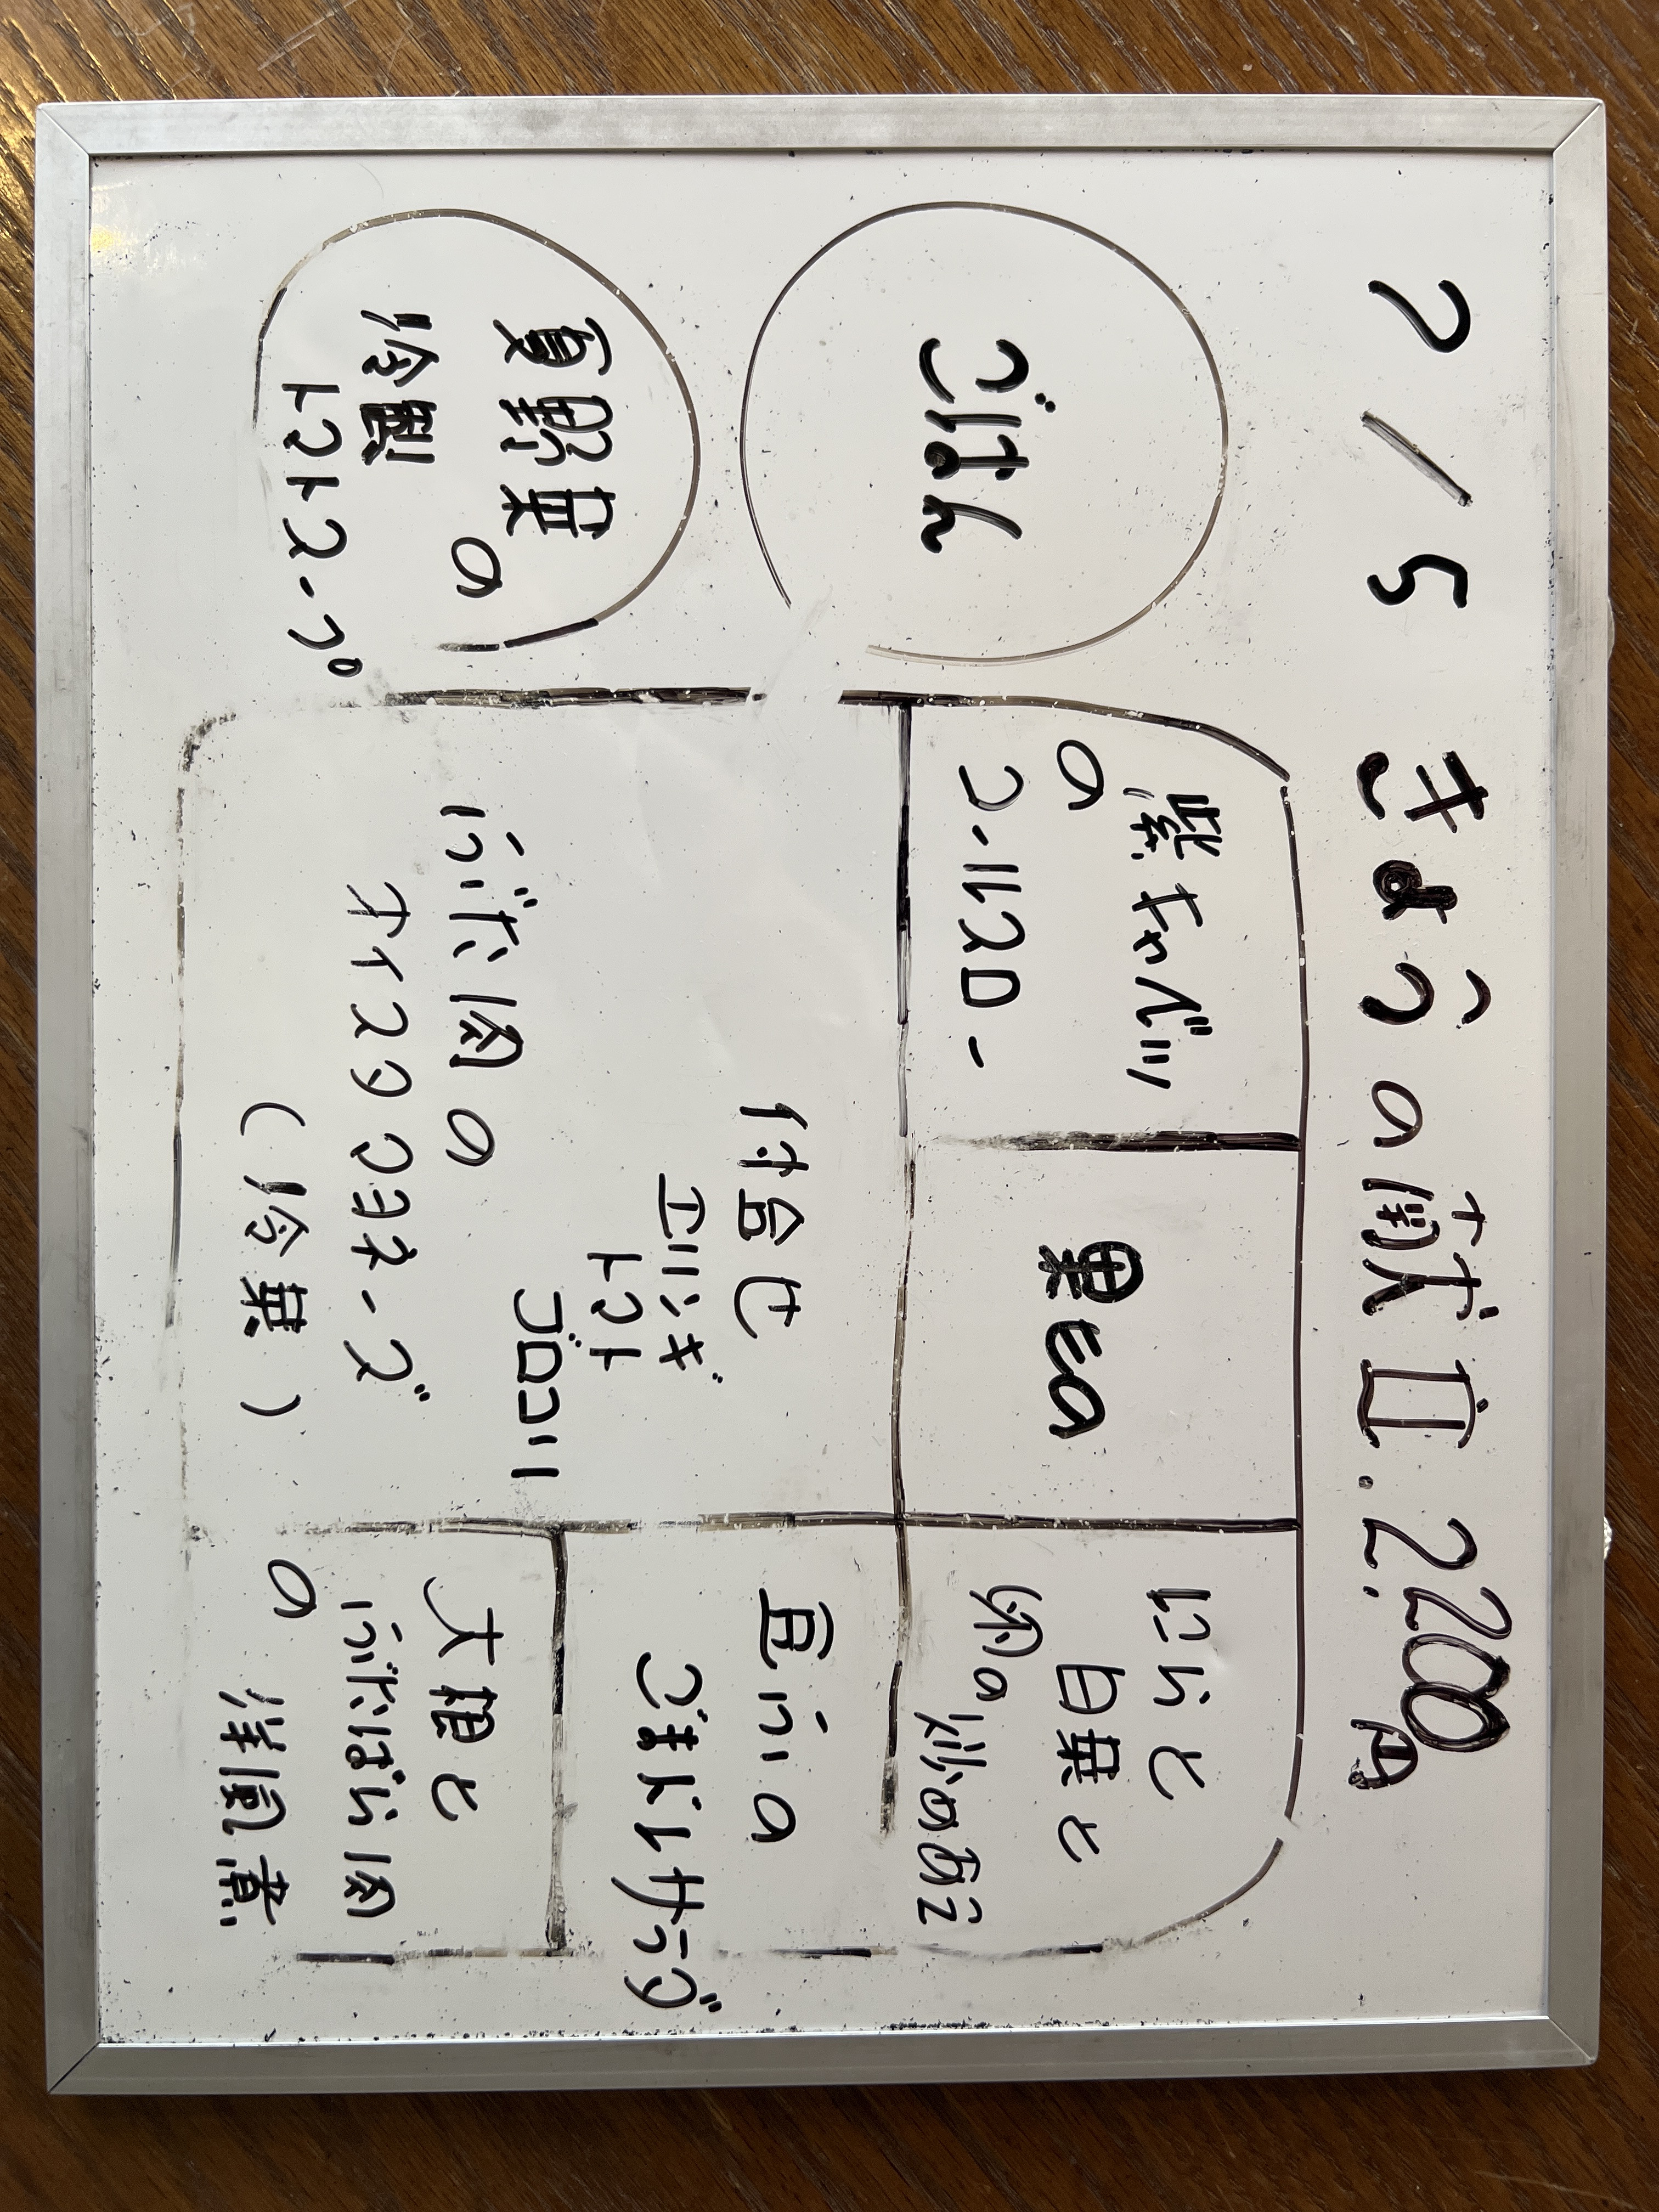 7/5 きょうの献立. 2,200円
ごはん
紫キャベツ
の
コールスロー
果もの
にらと
白菜と
卵の炒めあえ
付合せ
エリンギ
トマト
ブロッコリー
豆ふの
ごまドレサラダ
夏野菜
の
冷製
トマトスープ
ぶた肉の
オイスタマヨネーズ
(冷菜)
大根と
ぶたばら肉
の
洋風煮